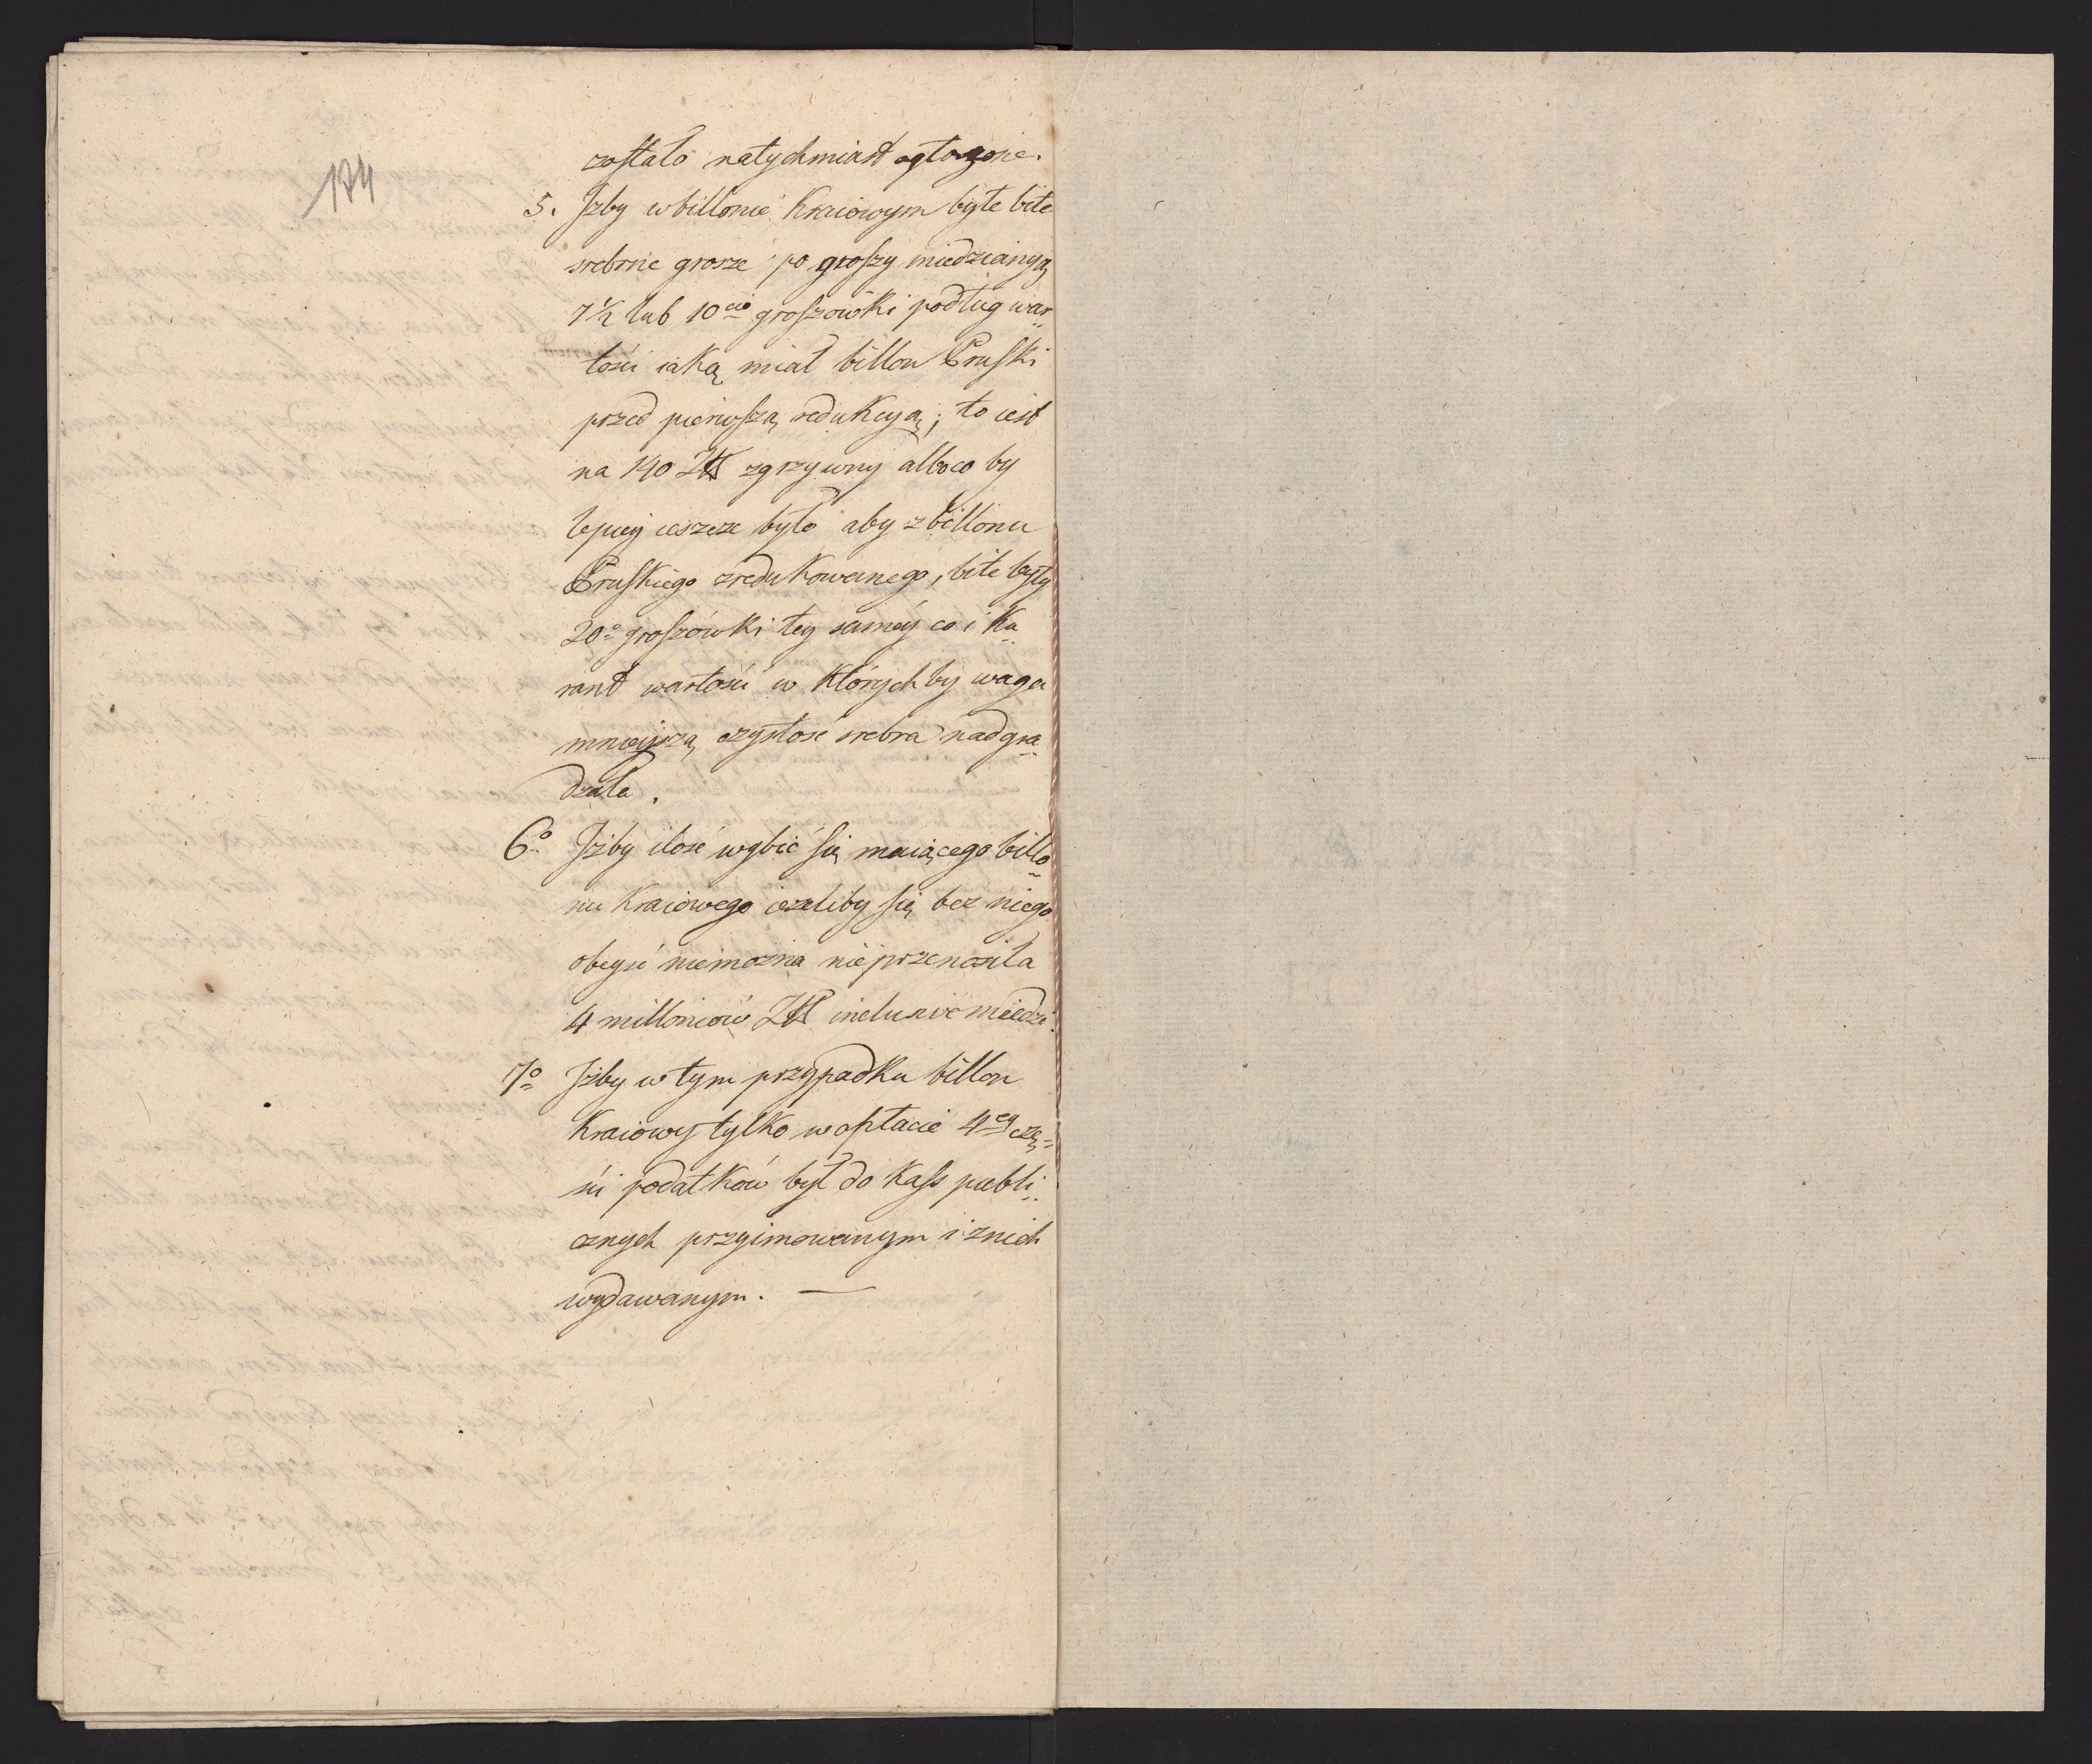 174
zostało natychmiast ogłoszone.
5. Jżby w billonie kraiowym byłe bite
srebrne grosze po groszy miedzianych
7½ lub 10cio groszowki podług war=
tości iaką miał billon Pruski
przed pierwszą redukcyą; to iest
na 140 Zł z grzywny albo co by
lepiey ieszcze było aby z billonu
Pruskiego zredukowanego, bite były
20o groszówki tey saméy co i Ku=
rant wartości w którychby waga
mnieyszą czystość srebra nadgra=
dzała.
6o Jżby ilość wybić się maiącego billo=
nu Kraiowego ieżeliby się bez niego
obeyść niemożna nieprzenosiła
4 millionów Zł inclusive miedzi.
7o Jżby w tym przypadku billon
Kraiowy tylko w opłacie 4ey czę=
ści podatków był do Kass publi=
cznych przyimowanym i z nich
wydawanym. —